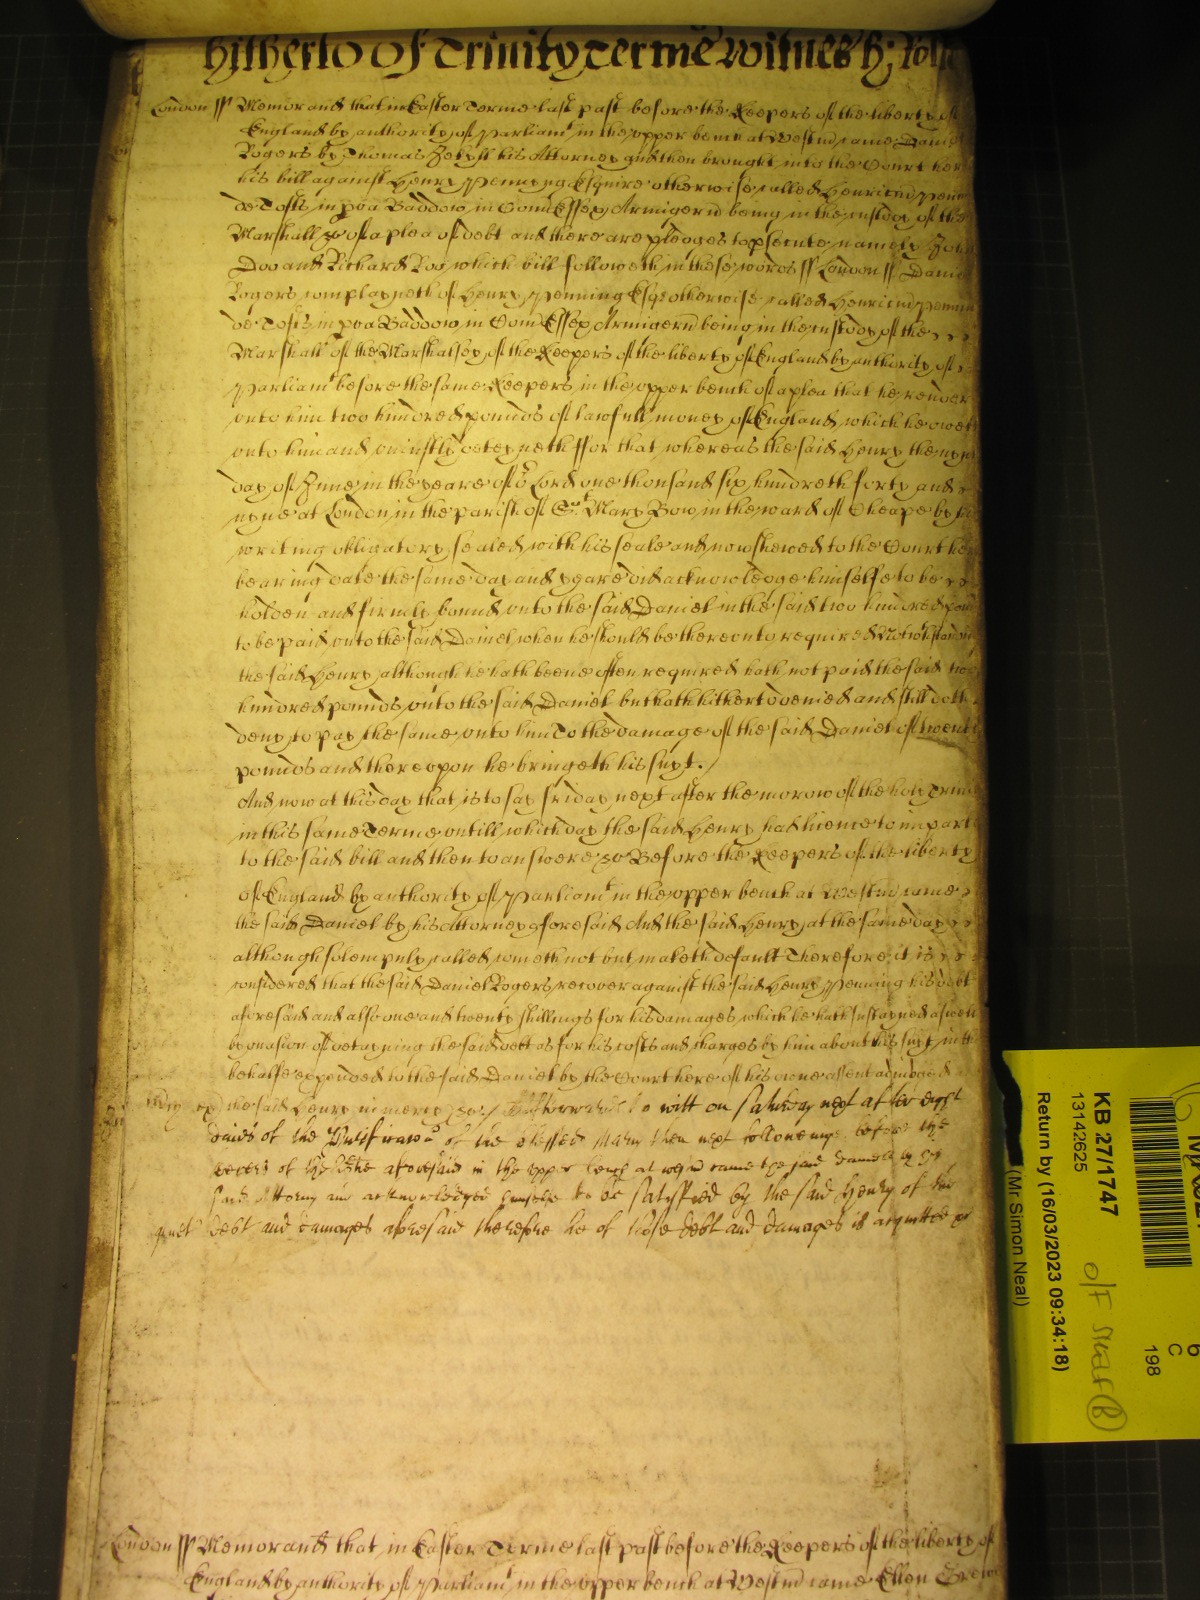 hitherto of Trinity Terme witnesseth; Rolle
London ss Memorand that in Easter Terme last past before the Keepers of the liberty of
England by authority of Parliamt in the upper bench at Westm came Daniel
Rogers by Thomas Jekyll his Attorney and then brought into the Court here
his bill against Henry Penning Esquire otherwise called Henricu Penn
de Tofts in pva Baddow in Com Essex Armigeru being in the custody of the
Marshall &c of a plea of debt and there are pledges to psecute namely John
Doo and Richard Roo which bill followeth in these words ss London ss Daniel
Rogers complayneth of Henry Penning Esqr otherwise called Henricu Penn
de Tofts in pva Baddow in Com Essex Armigeru being in the custody of the
Marshall of the Marshalsey of the Keepers of the liberty of England by authority of
Parliamt before the same Keepers in the upper bench of a plea that he render
unto him two hundred pounds of lawfull money of England which he oweth
unto him and uniustly deteyneth ffor that whereas the said Henry the
day of June in the yeare of or Lord one thousand six hundreth forty and
nyne at London in the parish of St Mary Bow in the ward of Cheape by his
writing obligatory sealed with his seale and now shewed to the Court here
bearing date the same day and yeare did acknowledge himselfe to be
holden and firmly bound unto the said Daniel in the said two hundred pounds
to be paid unto the said Daniel when he should be thereunto required
the said Henry although he hath beene often required hath not paid the said two
hundred pounds unto the said Daniel but hath hitherto denied and still doth
deny to pay the same unto him To the damage of the said Daniel of twenty
pounds and thereupon he bringeth his suyt.
And now at this day that is to say friday next after the morow of the holy Trin
in this same Terme untill which day the said Henry had licence to imparl
to the said bill and then to answere &c Before the Keepers of the liberty
of England by authority of Parliamt in the upper bench at Westm came
the said Daniel by his Attorney aforesaid And the said Henry at the same day
although solempnly called cometh not but maketh default Therefore it is
considered that the said Daniel Rogers recover against the said Henry Penning his debt
aforesaid and also one and twenty shillings for his damages which he hath susteyned aswell
by occasion of deteyning the said debt as for his costs and charges by him about his suyt in this
behalfe expended to the said Daniel by the Court here of his owne assent adiudged
mercy And the said Henry in mercy &c Afterwards to witt on saturday next after eight
daies of the Purificacon of the blessed Mary then next followeinge before the
keepers of the libtie aforesaid in the upper bench at Westm came the said Daniell by his
said Attorny and acknowledged himselfe to be satisfied by the said Henry of the
quiet debt and damages aforesaid therefore he of those debt and damages is acquitted &c
London ss Memorand that in Easter Terme last past before the Keepers of the liberty of
England by authority of Parliamt in the upper bench at Westm came Ellen
KB 27/1747
13142625
Return by (16/03/2023 09:34:18)
(Mr Simon Neal)
O/F
6
C
198